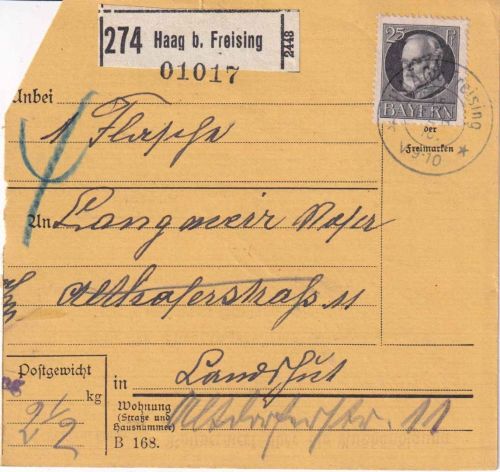 274 Haag b. Freising 2448
01017
25 Pf
BAYERN
Freising
V.9-10
der
Freimarken
Unbei
1 Flasche
An
Langmeir
str. 11
Postgewicht
kg
2 1/2
in
Landshut
Wohnung
(Straße und
Hausnummer)
Altdorferstr. 11
B 168.